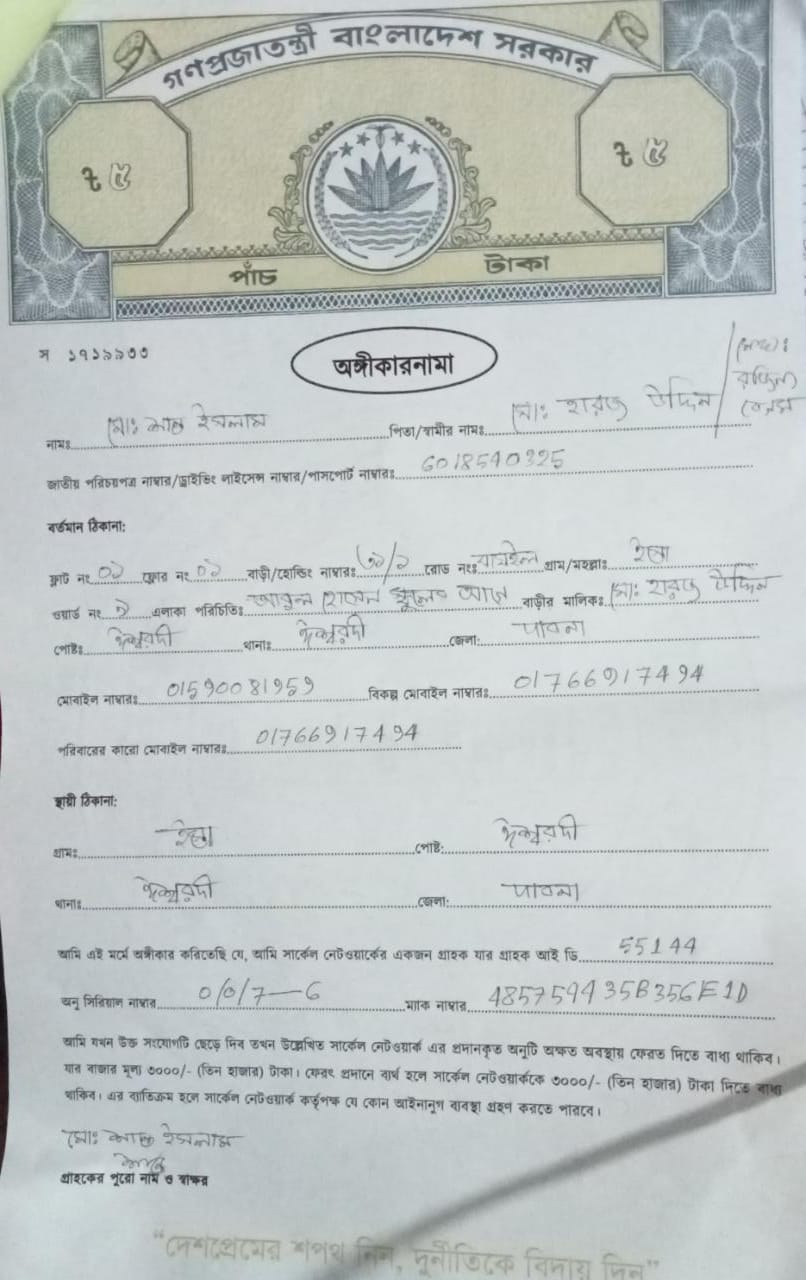 গণপ্রজাতন্ত্রী বাংলাদেশ সরকার
ট ৫ ট ৫
পাঁচ টাকা
স ১৭১৯৯৩৩
অঙ্গীকারনামা
নামঃ মোঃ ইসলাম পিতা/স্বামীর নামঃ মোঃ উদ্দিন
জাতীয় পরিচয়পত্র নাম্বার/ড্রাইভিং লাইসেন্স নাম্বার/পাসপোর্ট নাম্বারঃ 6018540325
বর্তমান ঠিকানা:
ফ্লাট নং ০১ ফ্লোর নং ০১ বাড়ী/হোল্ডিং নাম্বারঃ ৩১/১ রোড নংঃ গ্রাম/মহল্লাঃ
ওয়ার্ড নং ১ এলাকা পরিচিতিঃ আবুল স্কুলের বাড়ীর মালিকঃ মোঃ উদ্দিন
পোষ্টঃ ঈশ্বরদী থানাঃ ঈশ্বরদী জেলা: পাবনা
মোবাইল নাম্বারঃ 01590081959 বিকল্প মোবাইল নাম্বারঃ 01766917494
পরিবারের কারো মোবাইল নাম্বারঃ 01766917494
স্থায়ী ঠিকানা:
গ্রামঃ পোষ্ট: ঈশ্বরদী
থানাঃ ঈশ্বরদী জেলা: পাবনা
আমি এই মর্মে অঙ্গীকার করিতেছি যে, আমি সার্কেল নেটওয়ার্কের একজন গ্রাহক যার গ্রাহক আই ডি 55144
অনু সিরিয়াল নাম্বার 0/0/7-6 ম্যাক নাম্বার 485759435B356E1D
আমি যখন উক্ত সংযোগটি ছেড়ে দিব তখন উল্লেখিত সার্কেল নেটওয়ার্ক এর প্রদানকৃত অনুটি অক্ষত অবস্থায় ফেরত দিতে বাধ্য থাকিব।
যার বাজার মূল্য ৩০০০/- (তিন হাজার) টাকা। ফেরৎ প্রদানে ব্যর্থ হলে সার্কেল নেটওয়ার্ককে ৩০০০/- (তিন হাজার) টাকা দিতে বাধ্য
থাকিব। এর ব্যতিক্রম হলে সার্কেল নেটওয়ার্ক কর্তৃপক্ষ যে কোন আইনানুগ ব্যবস্থা গ্রহণ করতে পারবে।
মোঃ ইসলাম
গ্রাহকের পুরো নাম ও স্বাক্ষর
"দেশপ্রেমের শপথ নিন, দুর্নীতিকে বিদায় দিন"